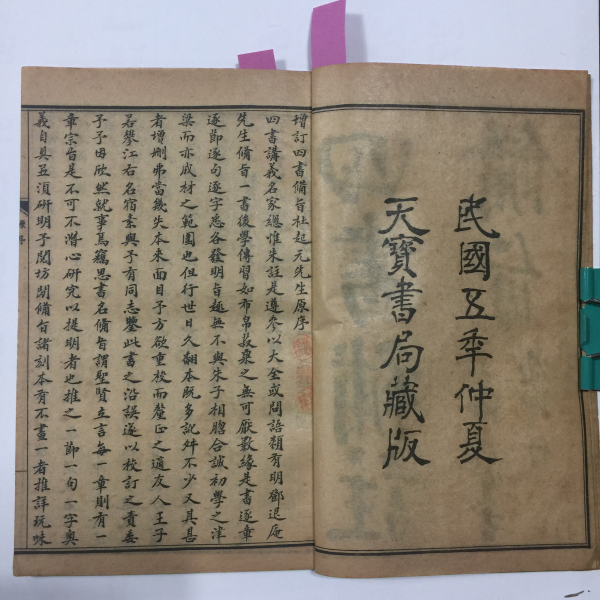 民國五年仲夏
天寶書局藏版
增訂四書備旨杜起元先生原序
四書講義名家總惟朱註是遵參以大全或問語類有明鄧退庵
先生備旨一書後學傳習如布帛菽粟之無可厭斁緣是書逐章
逐節逐句逐字悉各發明旨趣無不與朱子相脗合誠初學之津
梁而亦成材之範圍也但行世日久翻本既多訛舛不少又其甚
者增刪弗當幾失本來面目予方欲重梭而釐正之適友人王子
若攀江右名宿素與予有同志鑒此書之沿誤遂以校訂之責委
予予毋欣然就事焉竊思書名備旨謂聖賢立言每一章則有一
章宗旨是不可不潛心研究以提明者也推之一節一句一字奧
義自具五須研明予閱坊間備旨諸刻本有不畫一者推詳玩味